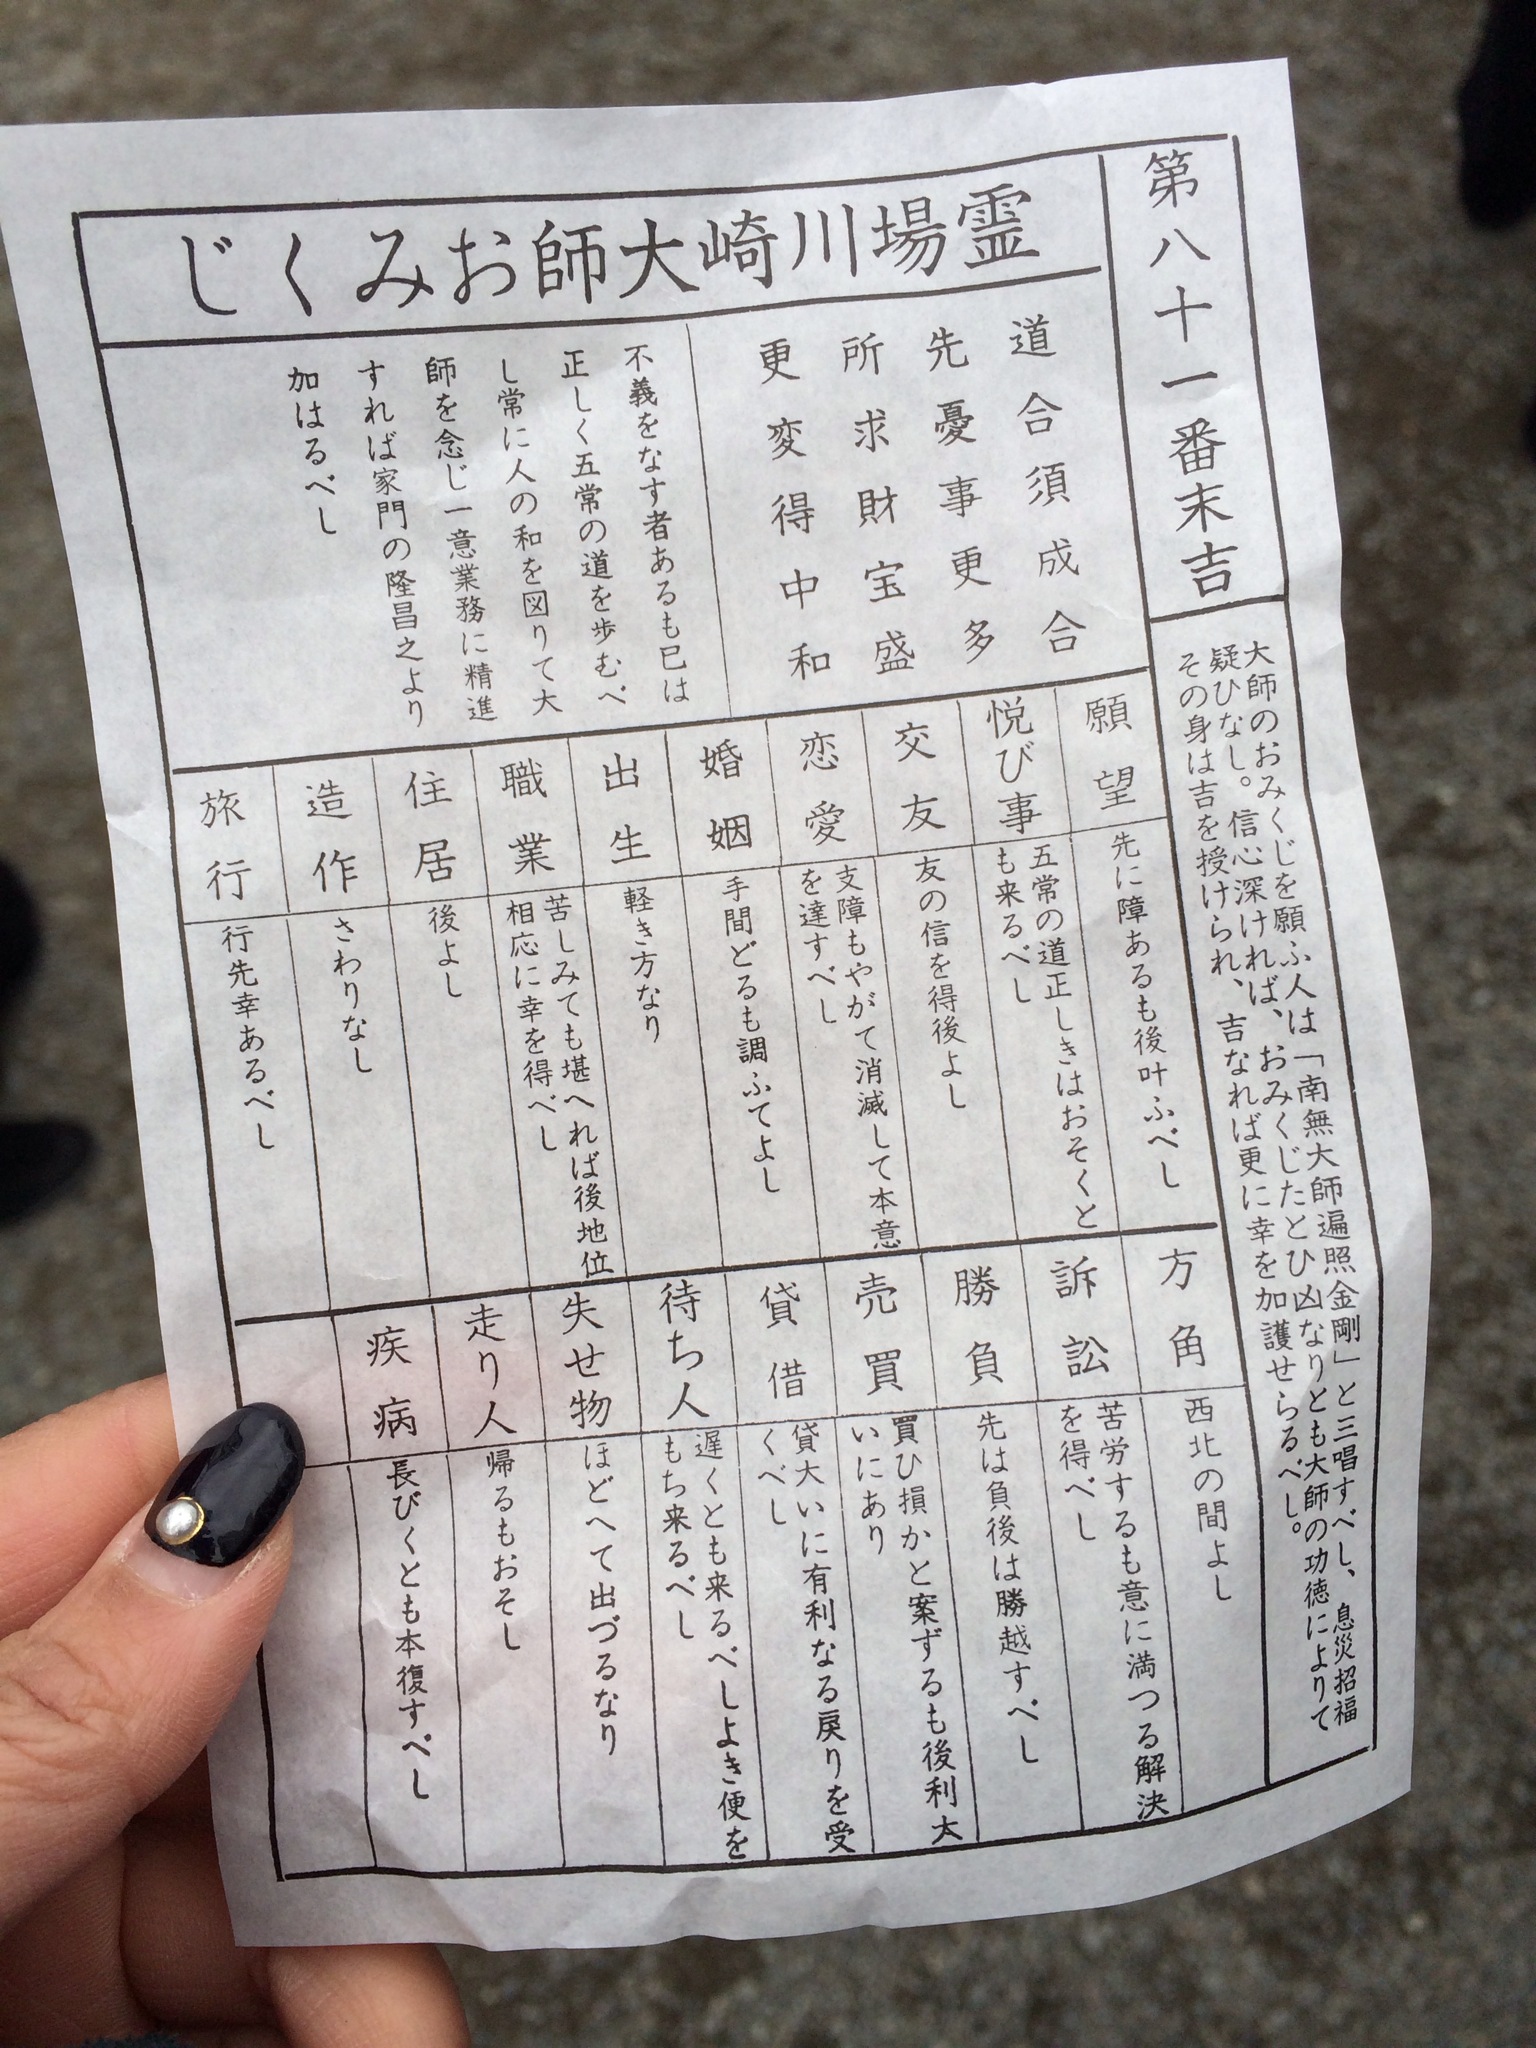 第八十一番末吉
大師のおみくじを願ふ人は「南無大師遍照金剛」と三唱すべし、息災招福
疑ひなし。信心深ければ、おみくじたとひ凶なりとも大師の功徳によりて
その身は吉を授けられ、吉なれば更に幸を加護せらるべし。
霊場川崎大師おみくじ
道合須成合
先憂事更多
所求財宝盛
更変得中和
不義をなす者あるも已は
正しく五常の道を歩むべ
し常に人の和を図りて大
師を念じ一意業務に精進
すれば家門の隆昌之より
加はるべし
願望
先に障あるも後叶ふべし
悦び事
五常の道正しきはおそくと
も来るべし
交友
友の信を得後よし
恋愛
支障もやがて消滅して本意
を達すべし
婚姻
手間どるも調ふてよし
出生
軽き方なり
職業
苦しみても堪へれば後地位
相応に幸を得べし
住居
後よし
造作
さわりなし
旅行
行先幸あるべし
方角
西北の間よし
訴訟
苦労するも意に満つる解決
を得べし
勝負
先は負後は勝越すべし
売買
買ひ損かと案ずるも後利大
いにあり
貸借
貸大いに有利なる戻りを受
くべし
待ち人
遅くとも来るべしよき便を
もち来るべし
失せ物
ほどへて出づるなり
走り人
帰るもおそし
疾病
長びくとも本復すべし